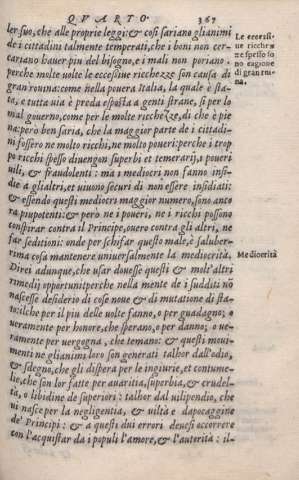 QVARTO. 367
ler suo, che alle proprie leggi: & cosi sariano gli animi
de i cittadini talmente temperati, che i boni non cer-
cariano hauer piu del bisogno, e i mali non poriano.
perche molte uolte le eccessiue ricchezze son causa di
gran rouina: come nella pouera Italia, la quale è sta-
ta, e tutta uia è preda esposta a genti strane, si per lo
mal gouerno, come per le molte ricchezze, di che è pie
na: però ben saria, che la maggior parte de i cittadi-
ni fossero ne molto ricchi, ne molto poueri: perche i trop
po ricchi spesso diuengon superbi et temerarij, i poueri
uili, & fraudolenti: ma i mediocri non fanno insi-
die a gli altri, et uiuono securi di non essere insidiati:
& essendo questi mediocri maggior numero, sono anco
ra piu potenti: & però ne i poueri, ne i ricchi possono
conspirar contra il Principe, ouero contra gli altri, ne
far seditioni: onde per schifar questo male, è saluber-
rima cosa mantenere uniuersalmente la mediocrità.
Direi adunque, che usar douesse questi & molt'altri
rimedij opportuni: perche nella mente de i sudditi nõ
nascesse desiderio di cose noue & di mutatione di sta-
to: ilche per il piu delle uolte fanno, o per guadagno; o
ueramente per honore, che sperano, o per danno; o ue-
ramente per vergogna, che temano: & questi moui-
menti ne gli animi loro son generati talhor dall'odio,
& sdegno, che gli dispera per le ingiurie, et contume-
lie, che son lor fatte per auaritia, superbia, & crudel-
tà, o libidine de superiori: talhor dal uilipendio, che
ui nasce per la negligentia, & uiltà e dapocaggine
de' Principi: & a questi dui errori deuesi occorrere
con l'acquistar da i populi l'amore, & l'autorità: il-
Le eccessi-
ue ricchez
ze spesso so
no cagione
di gran rui
na.
Mediocrità